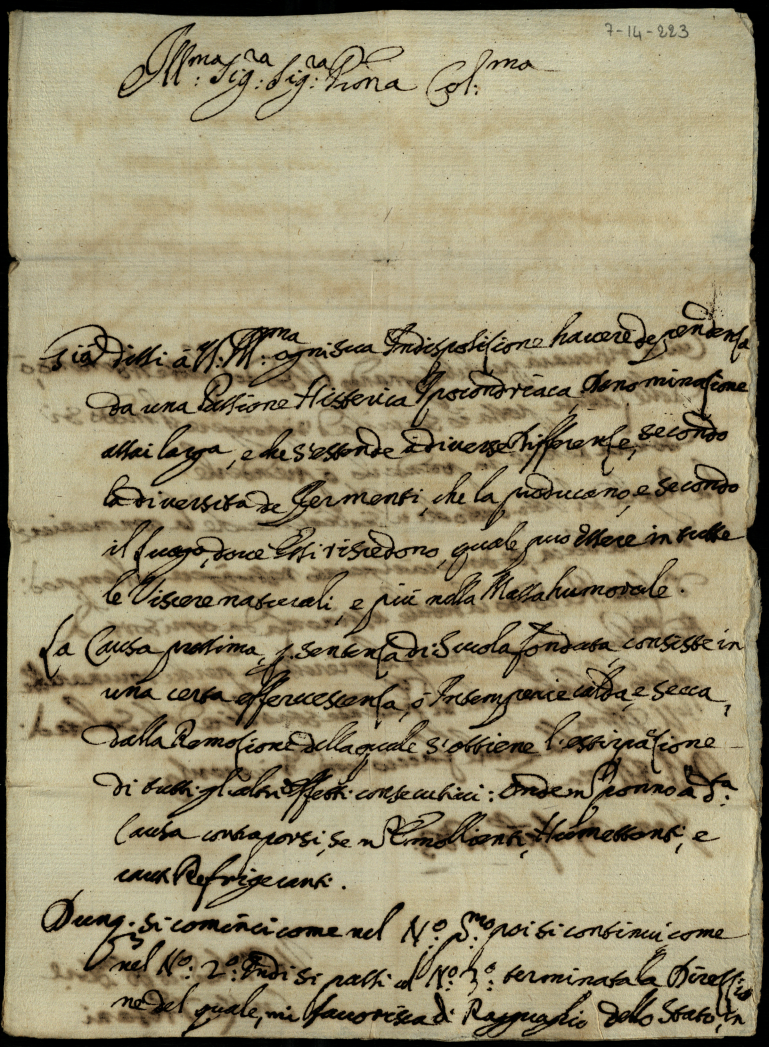 7-14-223
Ill:ma Sig:ra Sig:ra Pron̄a Col:ma
Già dissi à V.S. Ill:ma ogni sua Indisposizione havere dependenza
da una Passione Histerica Ipocondriaca, Denominazione
assai larga, e che s'estende à diverse Differenze, secondo
la diversita de Fermenti, che la producano, e secondo
il Luogo, dove Essi risiedono, quale può essere in tutte
le Viscere naturali, e più nella Massa humorale.
La Causa prossima, p. sentenza di Scuola fondata, consiste in
una certa effervescenza, ò Intemperie calda, e secca,
dalla Remozione della quale s'ottiene l'estirpazione
di tutti gl'altri Effetti consecutivi: Onde n̄ ponno à d:a
Causa contraporsi, se n̄ Emollienti, Humettanti, e
Refrigeranti.
Dunq. si cominci come nel N:o p:mo poi si continui come
nel N:o 2:o Indi si passi al N:o 3:o terminata la Direzzio
ne del quale, mi favorisca di Ragguaglio dello Stato, in